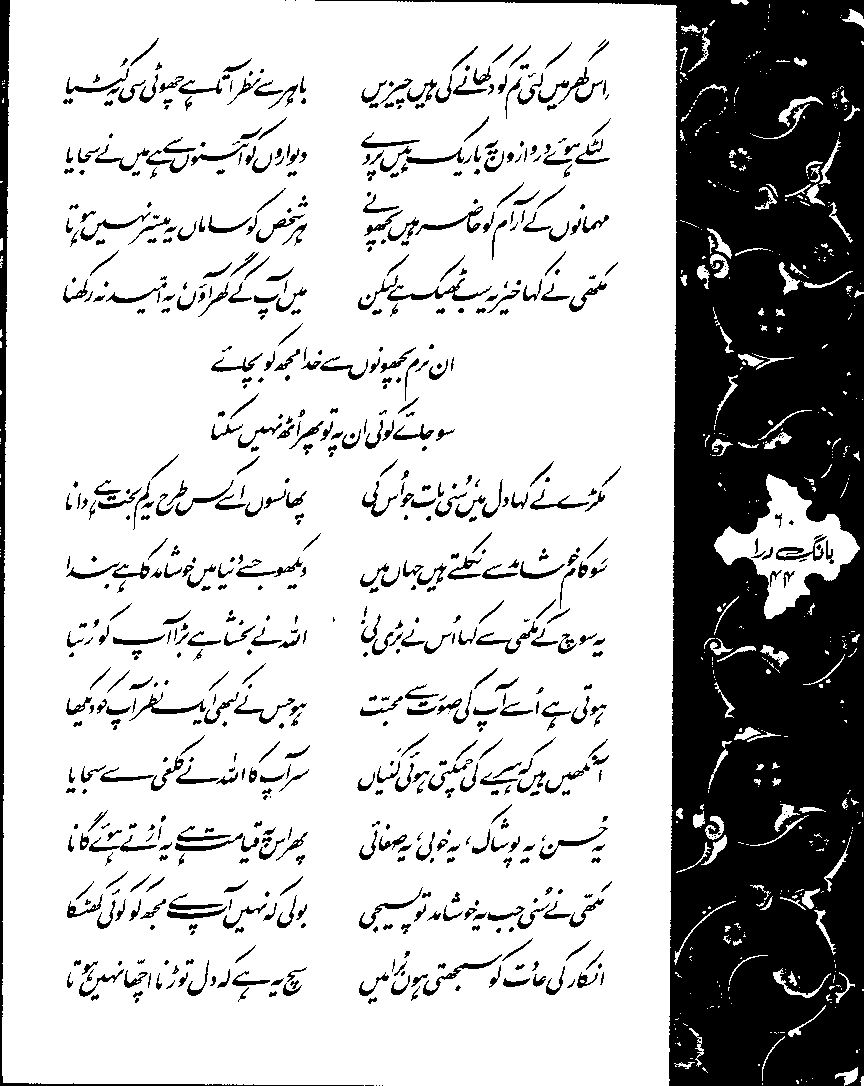 اس گھر میں کئی تم کو دکھانے کی ہیں چیزیں باہر سے نظر آتا ہے چھوٹی سی یہ کُٹیا
لٹکے ہوئے دروازوں پہ باریک ہیں پردے دیواروں کو آئینوں سے ہے میں نے سجایا
مہمانوں کے آرام کو حاضر ہیں بچھونے ہر شخص کو ساماں یہ میسّر نہیں ہوتا
مکھّی نے کہا خیر، یہ سب ٹھیک ہے لیکن میں آپ کے گھر آؤں، یہ امّید نہ رکھنا
ان نرم بچھونوں سے خدا مجھ کو بچائے
سو جائے کوئی ان پہ تو پھر اُٹھ نہیں سکتا
مکڑے نے کہا دل میں، سُنی بات جو اُس کی پھانسوں اسے کس طرح یہ کم بخت ہے دانا
سَو کام خوشامد سے نکلتے ہیں جہاں میں دیکھو جسے دنیا میں خوشامد کا ہے بندا
یہ سوچ کے مکھّی سے کہا اُس نے بڑی بی! اللہ نے بخشا ہے بڑا آپ کو رُتبا
ہوتی ہے اُسے آپ کی صورت سے محبت ہو جس نے کبھی ایک نظر آپ کو دیکھا
آنکھیں ہیں کہ ہیرے کی چمکتی ہوئی کنیاں سر آپ کا اللہ نے کلغی سے سجایا
یہ حُسن، یہ پوشاک، یہ خوبی، یہ صفائی پھر اس پہ قیامت ہے یہ اُڑتے ہوئے گانا
مکھّی نے سُنی جب یہ خوشامد تو پسیجی بولی کہ نہیں آپ سے مجھ کو کوئی کھٹکا
انکار کی عادت کو سمجھتی ہوں بُرا میں سچ یہ ہے کہ دل توڑنا اچھّا نہیں ہوتا
۶۰
بانگِ درا
۴۴